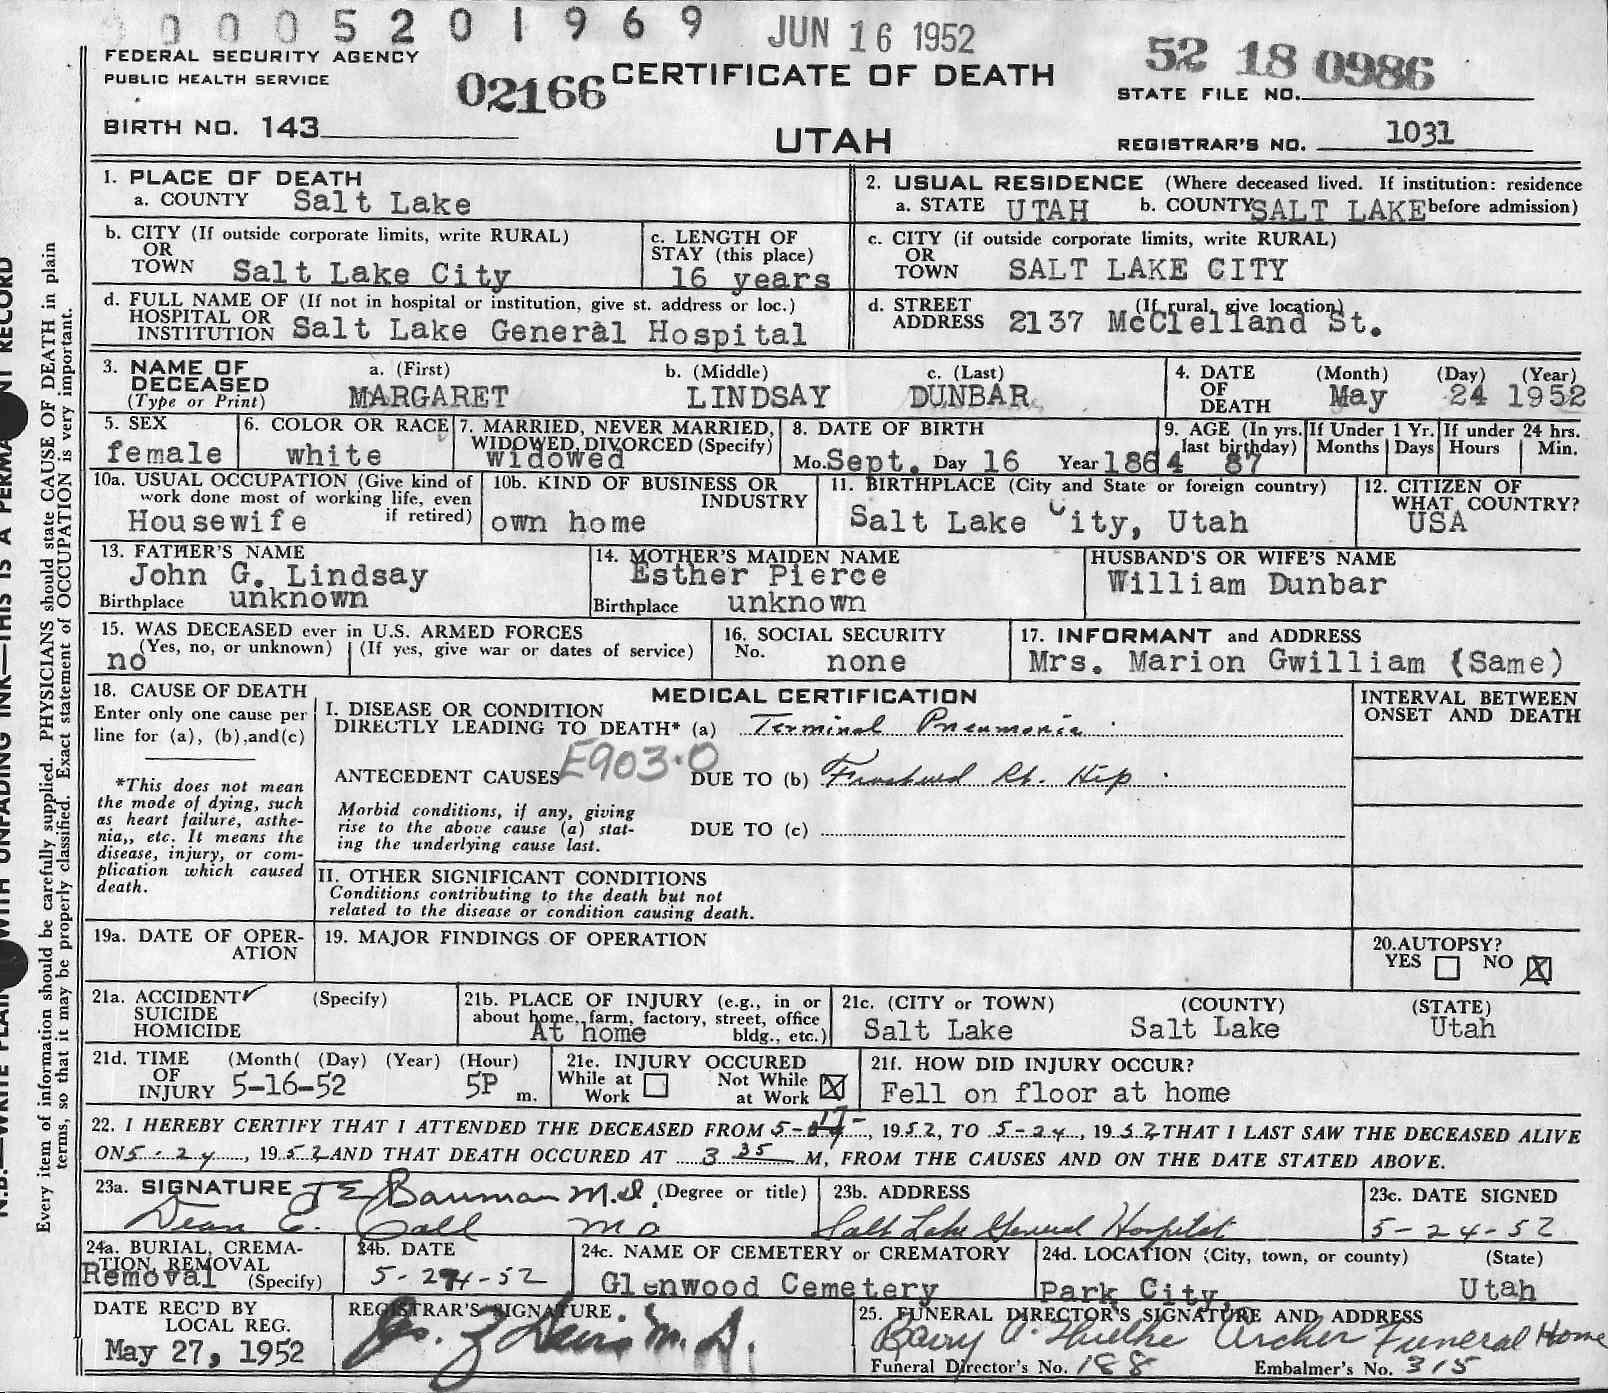 0 0 0 5 2 0 1 9 6 9 JUN 16 1952
FEDERAL SECURITY AGENCY
PUBLIC HEALTH SERVICE
02166 CERTIFICATE OF DEATH
52 18 0986
STATE FILE NO.
BIRTH NO. 143
UTAH
REGISTRAR'S NO. 1031
1. PLACE OF DEATH
a. COUNTY Salt Lake
2. USUAL RESIDENCE (Where deceased lived. If institution: residence
a. STATE UTAH b. COUNTY SALT LAKE before admission)
b. CITY (If outside corporate limits, write RURAL)
OR
TOWN Salt Lake City
c. LENGTH OF
STAY (this place)
16 years
c. CITY (if outside corporate limits, write RURAL)
OR
TOWN SALT LAKE CITY
d. FULL NAME OF (If not in hospital or institution, give st. address or loc.)
HOSPITAL OR
INSTITUTION Salt Lake General Hospital
d. STREET (If rural, give location)
ADDRESS 2137 McClelland St.
3. NAME OF a. (First) b. (Middle) c. (Last)
DECEASED
(Type or Print) MARGARET LINDSAY DUNBAR
4. DATE (Month) (Day) (Year)
OF
DEATH May 24 1952
5. SEX
female
6. COLOR OR RACE
white
7. MARRIED, NEVER MARRIED,
WIDOWED, DIVORCED (Specify)
widowed
8. DATE OF BIRTH
Mo. Sept. Day 16 Year 1864
9. AGE (In yrs.
last birthday)
87
If Under 1 Yr.
Months Days
If under 24 hrs.
Hours Min.
10a. USUAL OCCUPATION (Give kind of
work done most of working life, even
if retired)
Housewife
10b. KIND OF BUSINESS OR
INDUSTRY
own home
11. BIRTHPLACE (City and State or foreign country)
Salt Lake City, Utah
12. CITIZEN OF
WHAT COUNTRY?
USA
13. FATHER'S NAME
John G. Lindsay
Birthplace unknown
14. MOTHER'S MAIDEN NAME
Esther Pierce
Birthplace unknown
HUSBAND'S OR WIFE'S NAME
William Dunbar
15. WAS DECEASED ever in U.S. ARMED FORCES
(Yes, no, or unknown) (If yes, give war or dates of service)
no
16. SOCIAL SECURITY
No. none
17. INFORMANT and ADDRESS
Mrs. Marion Gwilliam (Same)
18. CAUSE OF DEATH
Enter only one cause per
line for (a), (b), and (c)
*This does not mean
the mode of dying, such
as heart failure, asthe-
nia,, etc. It means the
disease, injury, or com-
plication which caused
death.
MEDICAL CERTIFICATION
I. DISEASE OR CONDITION
DIRECTLY LEADING TO DEATH* (a) Terminal Pneumonia
ANTECEDENT CAUSES E903.0 DUE TO (b) Fractured Rt. Hip
Morbid conditions, if any, giving
rise to the above cause (a) stat-
ing the underlying cause last.
DUE TO (c)
II. OTHER SIGNIFICANT CONDITIONS
Conditions contributing to the death but not
related to the disease or condition causing death.
INTERVAL BETWEEN
ONSET AND DEATH
19a. DATE OF OPER-
ATION
19. MAJOR FINDINGS OF OPERATION
20. AUTOPSY?
YES NO X
21a. ACCIDENT ✓ (Specify)
SUICIDE
HOMICIDE
21b. PLACE OF INJURY (e.g., in or
about home, farm, factory, street, office
bldg., etc.)
At home
21c. (CITY or TOWN) (COUNTY) (STATE)
Salt Lake Salt Lake Utah
21d. TIME (Month( (Day) (Year) (Hour)
OF
INJURY 5-16-52 5P m.
21e. INJURY OCCURED
While at Work Not While at Work X
21f. HOW DID INJURY OCCUR?
Fell on floor at home
22. I HEREBY CERTIFY THAT I ATTENDED THE DECEASED FROM 5-17-, 1952, TO 5-24, 1952 THAT I LAST SAW THE DECEASED ALIVE
ON 5-24, 1952 AND THAT DEATH OCCURED AT 3 35 M, FROM THE CAUSES AND ON THE DATE STATED ABOVE.
23a. SIGNATURE J E Bauman M.D. (Degree or title)
Dean E. Call MD
23b. ADDRESS
Salt Lake General Hospital
23c. DATE SIGNED
5-24-52
24a. BURIAL, CREMA-
TION, REMOVAL
Removal (Specify)
24b. DATE
5-24-52
24c. NAME OF CEMETERY or CREMATORY
Glenwood Cemetery
24d. LOCATION (City, town, or county) (State)
Park City, Utah
DATE REC'D BY
LOCAL REG.
May 27, 1952
REGISTRAR'S SIGNATURE
M.D.
25. FUNERAL DIRECTOR'S SIGNATURE AND ADDRESS
Archer Funeral Home
Funeral Director's No. 188 Embalmer's No. 315
N.B.—WRITE PLAINLY WITH UNFADING INK—THIS IS A PERMANENT RECORD
Every item of information should be carefully supplied. PHYSICIANS should state CAUSE OF DEATH in plain
terms, so that it may be properly classified. Exact statement of OCCUPATION is very important.